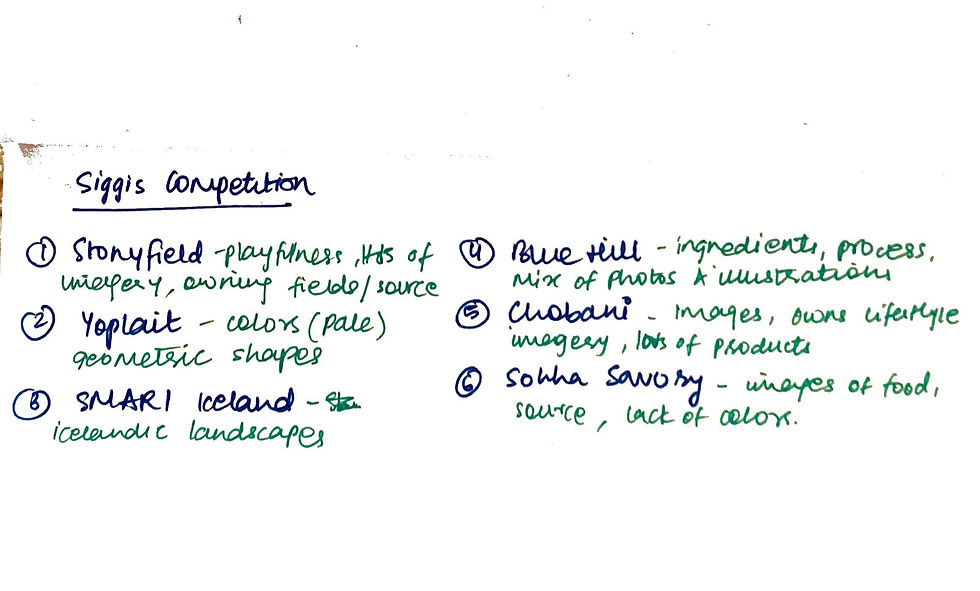 Siggis Competition
① Stonyfield - playfulness, lots of
imagery, owning fields/source
② Yoplait - colors (pale)
geometric shapes
③ SMARI Iceland -
icelandic landscapes
④ Blue Hill - ingredients, process,
mix of photos & illustrations
⑤ Chobani - images, owns lifestyle
imagery, lots of products
⑥ Sohha Savory - images of food,
source, lack of colors.